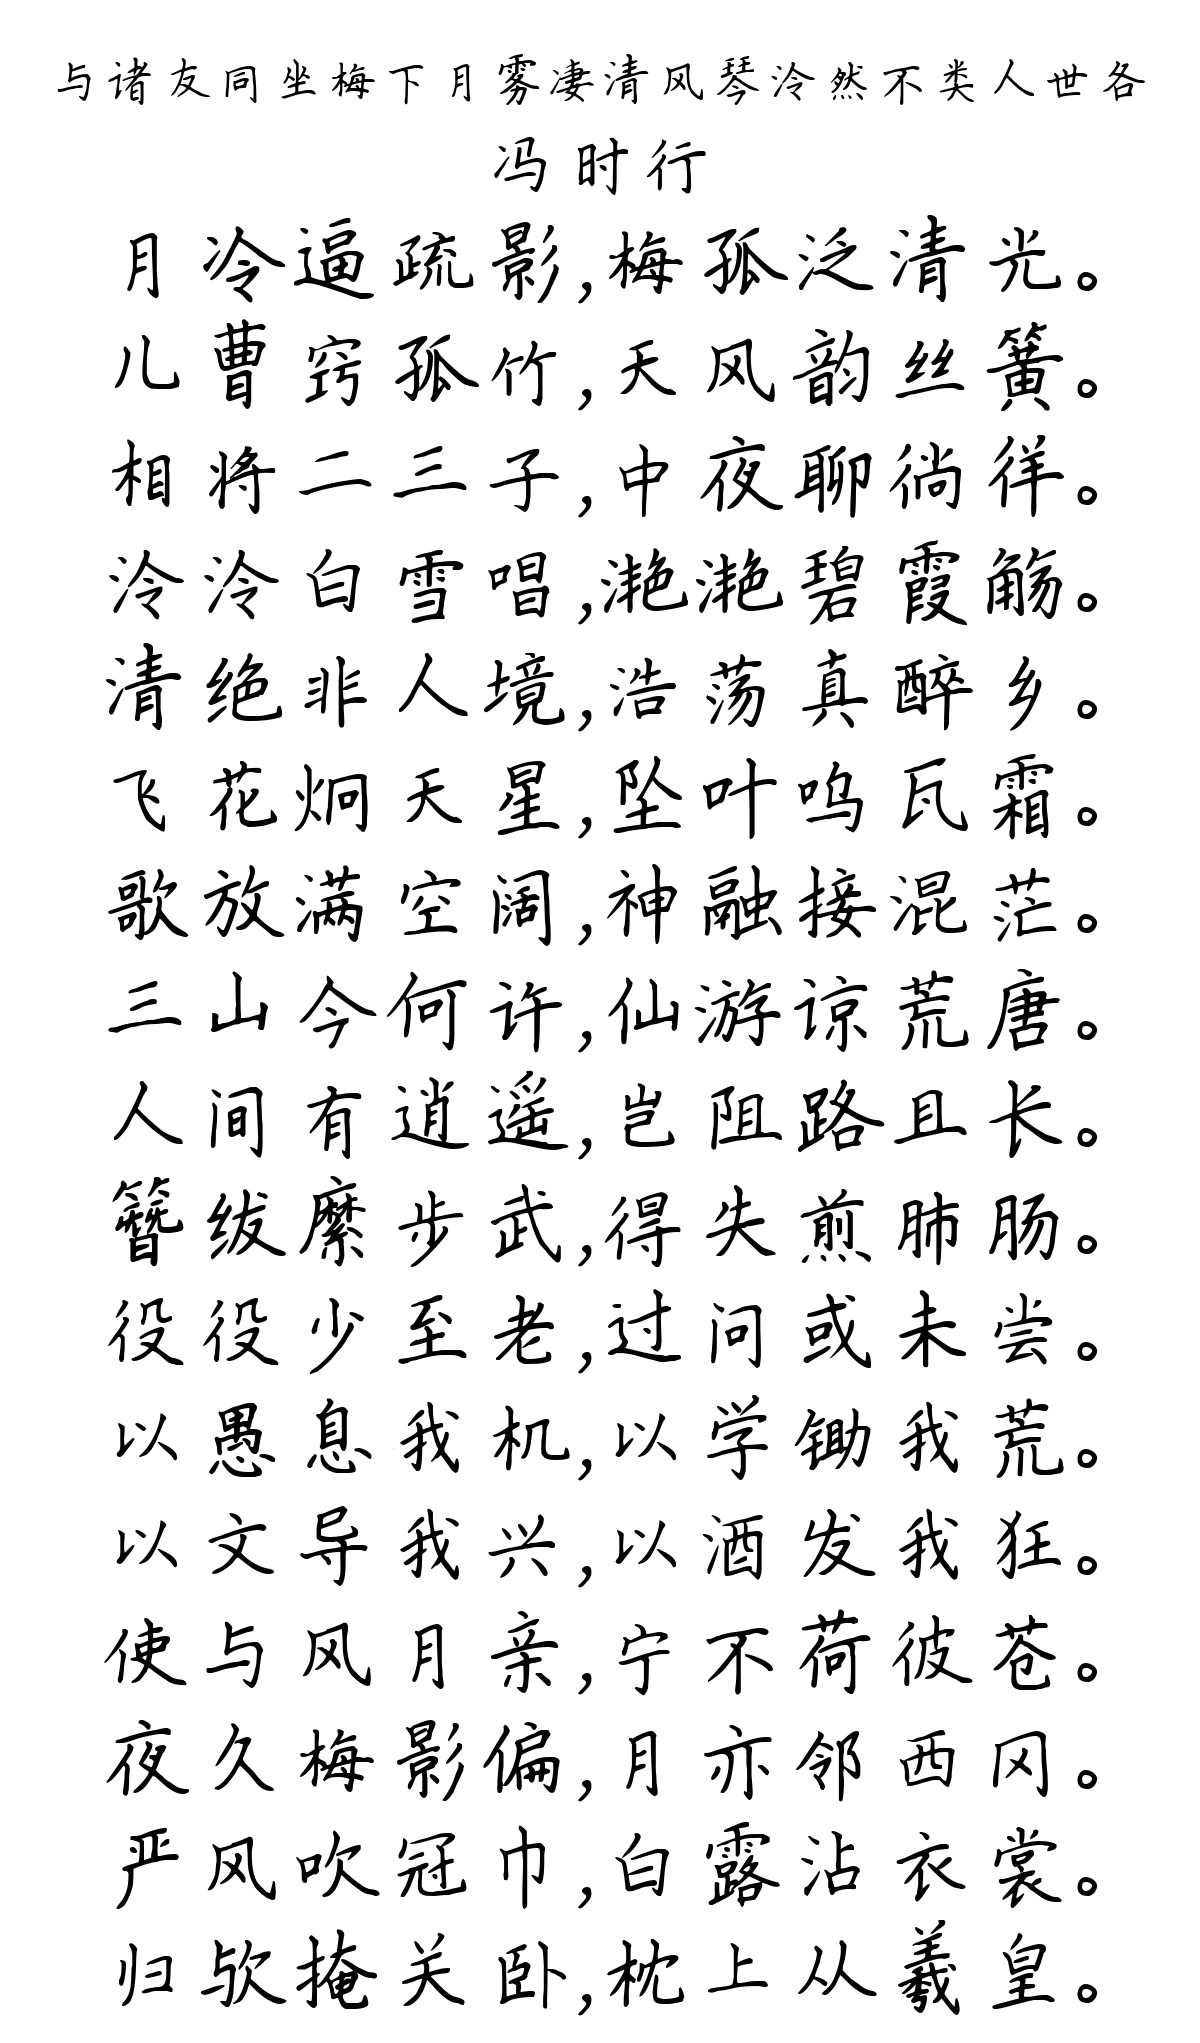 与诸友同坐梅下月雾凄清风琴泠然不类人世各
冯时行
月冷逼疏影,梅孤泛清光。
儿曹窍孤竹,天风韵丝簧。
相将二三子,中夜聊徜徉。
泠泠白雪唱,滟滟碧霞觞。
清绝非人境,浩荡真醉乡。
飞花炯天星,坠叶呜瓦霜。
歌放满空阔,神融接混茫。
三山今何许,仙游谅荒唐。
人间有逍遥,岂阻路且长。
簪绂縻步武,得失煎肺肠。
役役少至老,过问或未尝。
以愚息我机,以学锄我荒。
以文导我兴,以酒发我狂。
使与风月亲,宁不荷彼苍。
夜久梅影偏,月亦邻西冈。
严风吹冠巾,白露沾衣裳。
归欤掩关卧,枕上从羲皇。